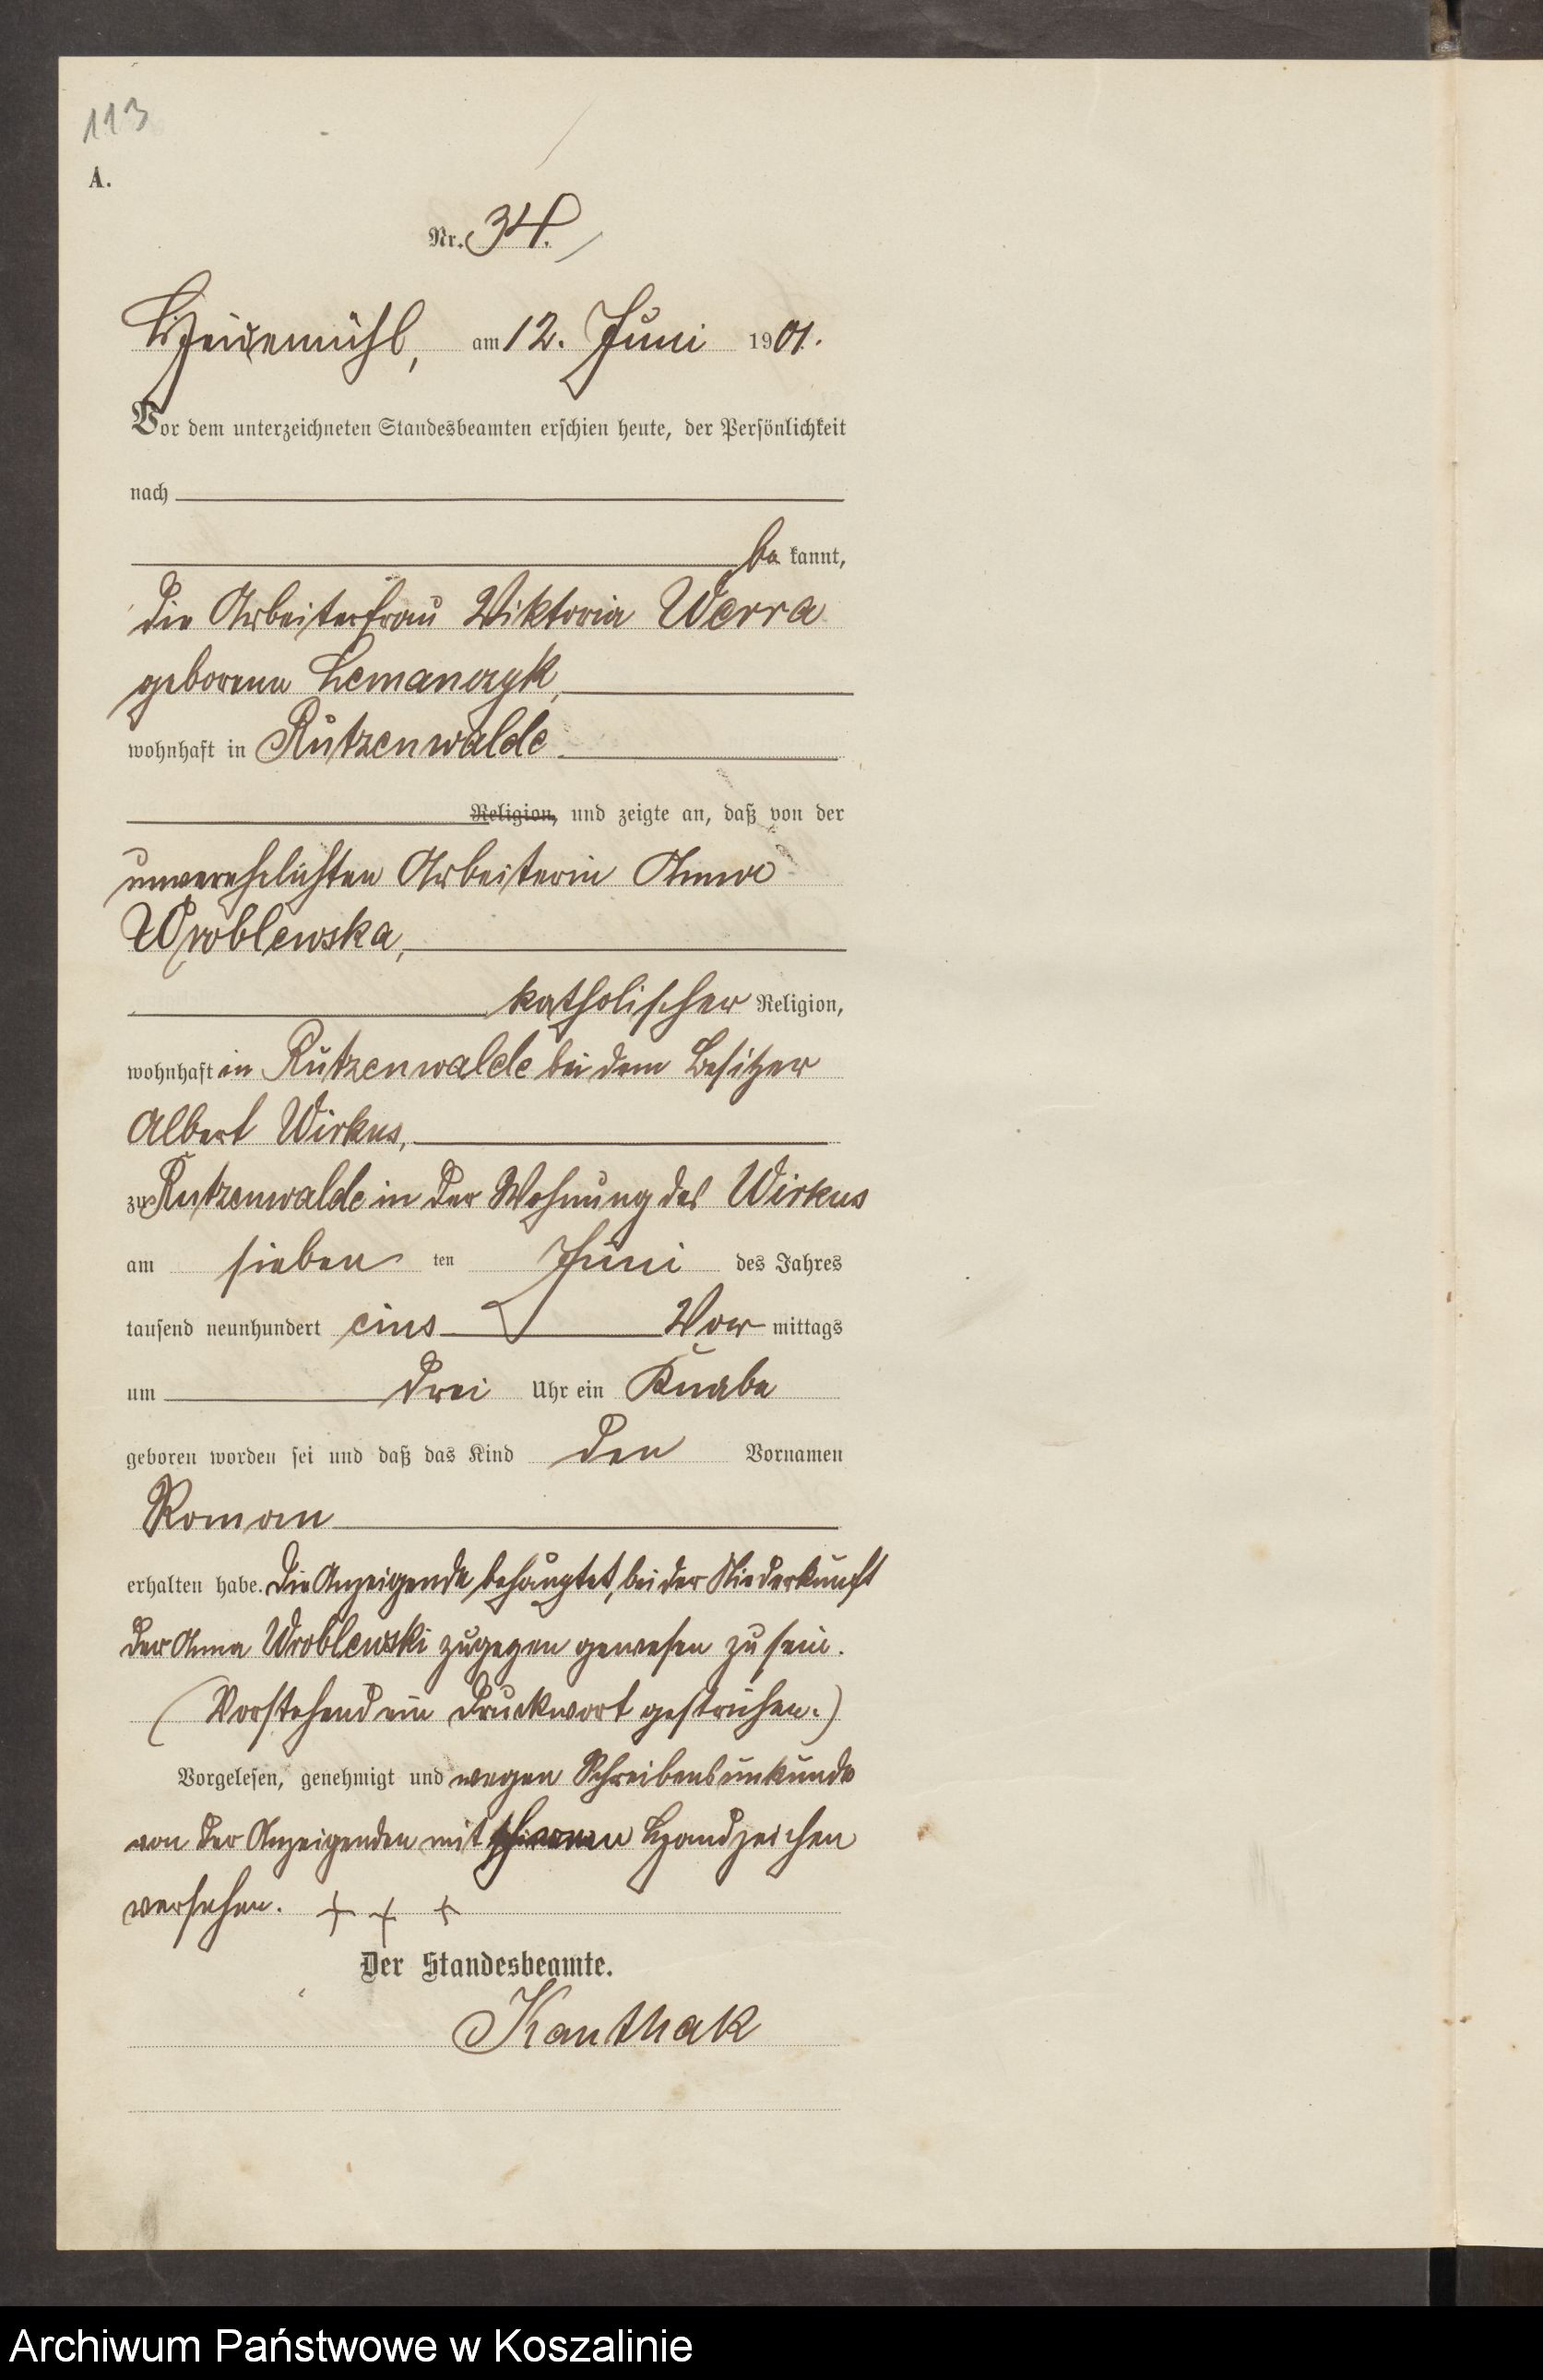 113
A.
Nr. 34.
Heidemühl, am 12. Juni 1901.
Vor dem unterzeichneten Standesbeamten erschien heute, der Persönlichkeit
nach
be kannt,
die Arbeiterfrau Viktoria Werra
geborene Lemanczyk,
wohnhaft in Rutzenwalde
Religion, und zeigte an, daß von der
unverehelichten Arbeiterin Anna
Wroblewska,
katholischer Religion,
wohnhaft in Rutzenwalde bei dem Besitzer
Albert Wirkus,
zu Rutzenwalde in der Wohnung des Wirkus
am sieben ten Juni des Jahres
tausend neunhundert eins Vor mittags
um drei Uhr ein Knabe
geboren worden sei und daß das Kind den Vornamen
Roman
erhalten habe. Die Anzeigende behauptet, bei der Niederkunft
der Anna Wroblewski zugegen gewesen zu sein.
(Vorstehend ein Druckwort gestrichen.)
Vorgelesen, genehmigt und wegen Schreibensunkunde
von der Anzeigenden mit Handzeichen
versehen. + + +
Der Standesbeamte.
Kanthak
Archiwum Państwowe w Koszalinie